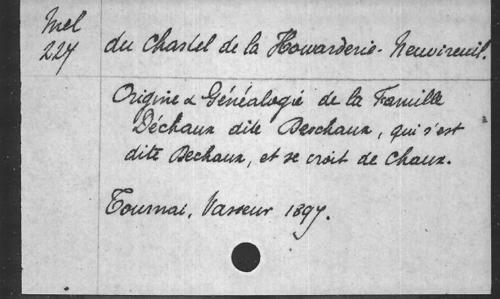 Mel
227
du Chastel de la Howarderie-Neuvireuil.
Origine & Généalogie de la Famille
Déchaux dite Deschaux, qui s'est
dite Dechaux, et se croit de Chaux.
Tournai, Vasseur 1897.